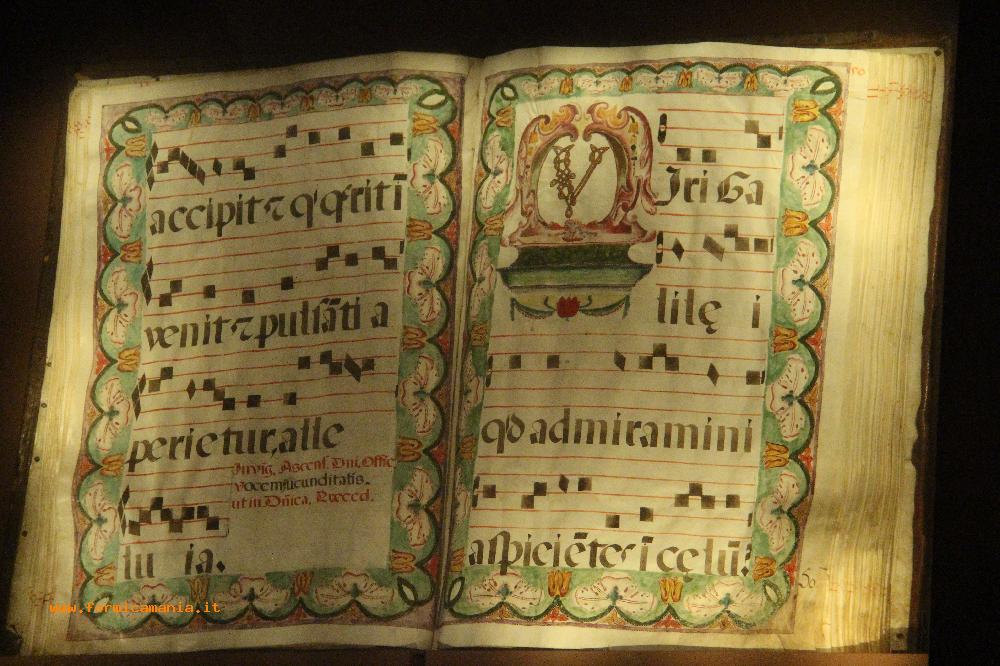 accipit ⁊ q̓ q̄rit ī
venit ⁊ pulsāti a
perietur, alle
In vig. Ascens. Dni. Offic.
Vocem jucunditatis.
ut in Dn̄ica.
lu ia.
V Iri Ga
lilę i
qd admiramini
aspiciētes ī cęlū?
www.formicamania.it